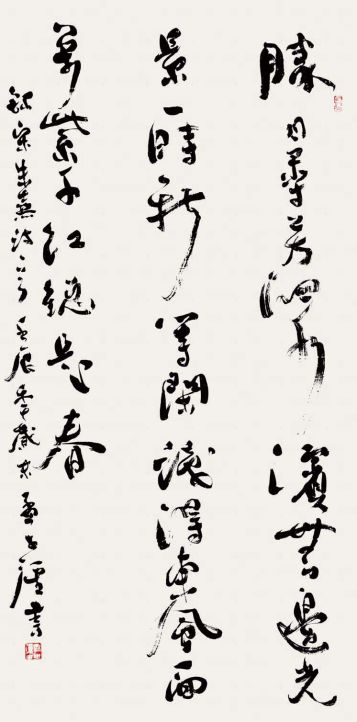 勝日尋芳泗水濱無邊光
景一時新等閑識得東風面
萬紫千紅總是春
錄宋朱熹詩一首壬辰年歲末書